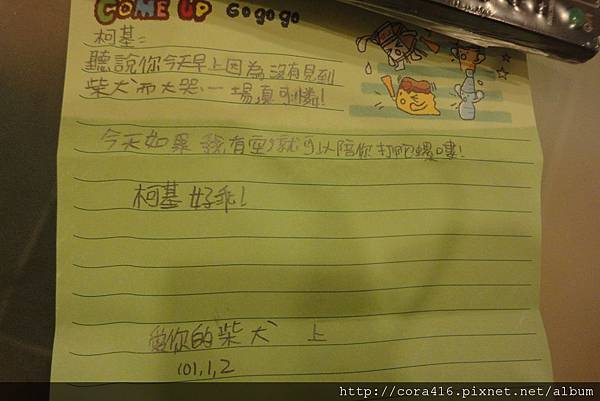 COME UP Gogogo
柯基:
聽說你今天早上因為沒有見到
柴犬而大哭一場真可憐!
今天如果我有空就可以陪你打陀螺嘍!
柯基好乖!
愛你的柴犬 上
101,1,2
http://cora416.pixnet.net/album